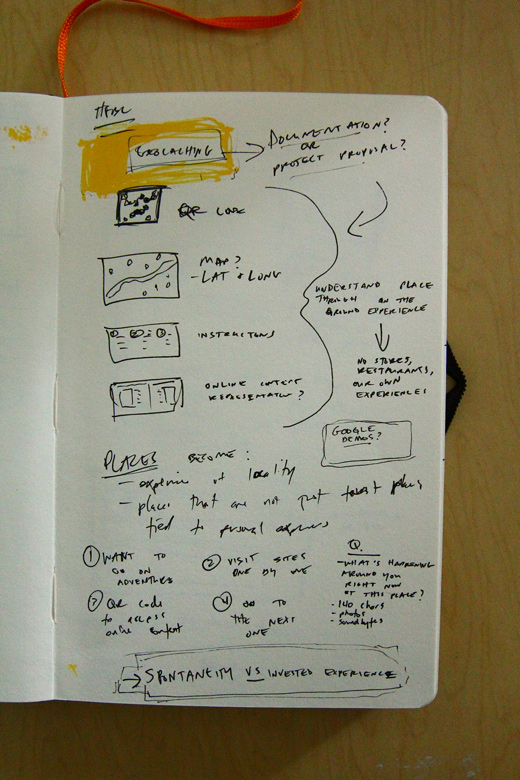 GEOCACHING
DOCUMENTATION?
OR
PROJECT PROPOSAL?
QR CODE
MAP?
- LAT & LONG
UNDERSTAND PLACE
THROUGH ON THE
GROUND EXPERIENCE
INSTRUCTIONS
NO STORES,
RESTAURANTS,
OUR OWN
EXPERIENCES
ONLINE CONTENT
REPRESENTATION?
GOOGLE
DEMOS?
PLACES BECOME:
- experience of locality
- places that are not just tourist places
tied to personal
① WANT TO
GO ON
ADVENTURE
② VISIT SITES
ONE BY ONE
③ QR CODE
to access
online content
④ GO TO
THE NEXT
ONE
Q.
- WHAT'S HAPPENING
AROUND YOU
RIGHT NOW
AT THIS PLACE?
- 140 chars
- photos
- soundbytes
→ SPONTANEITY VS INVESTED EXPERIENCE